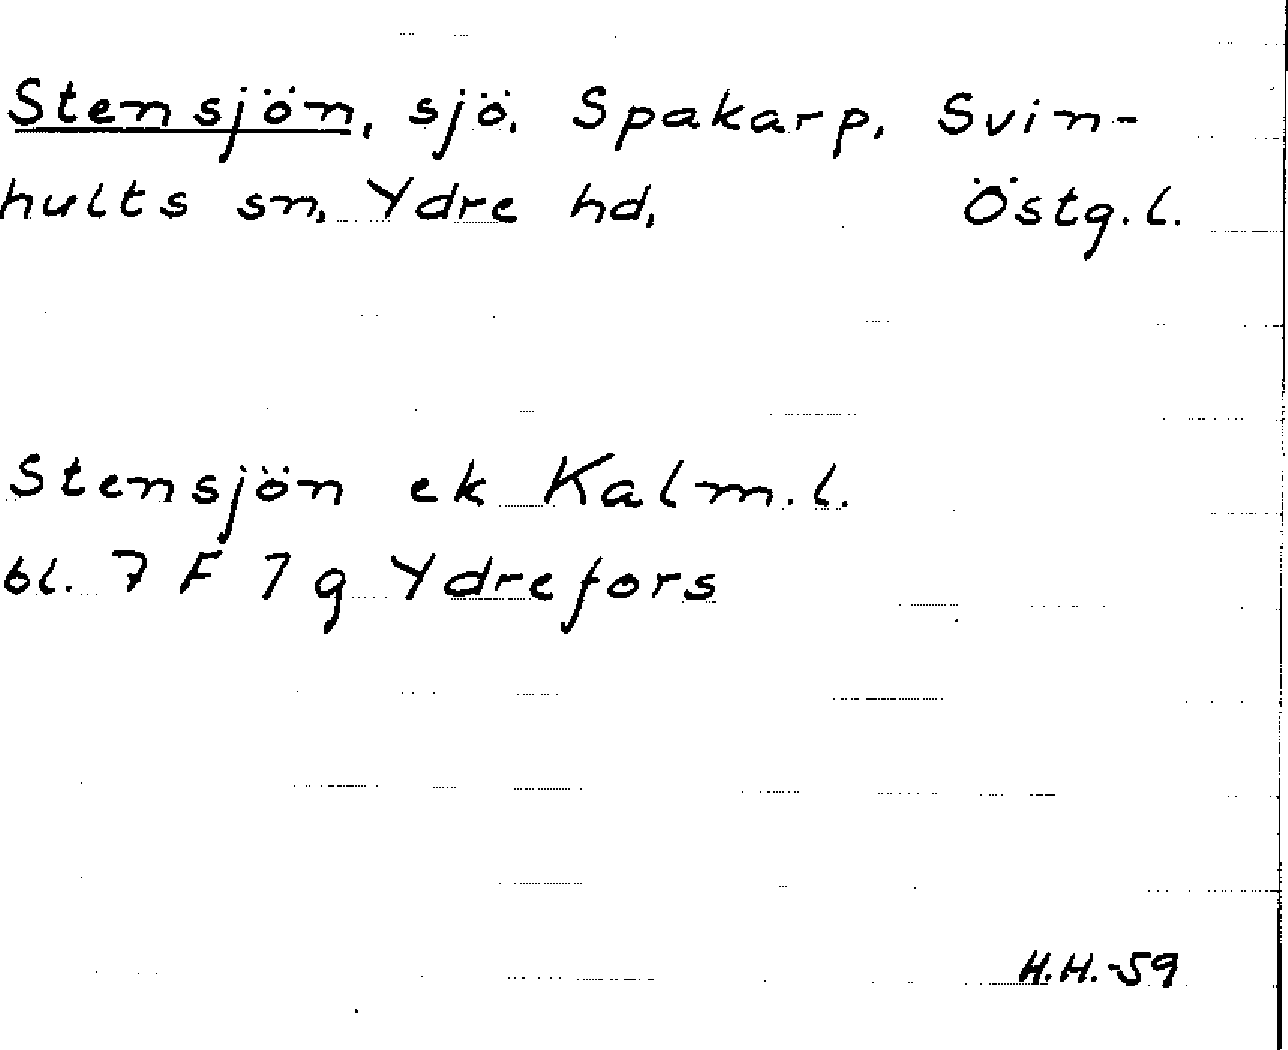 Stensjön, sjö, Spakarp, Svin-
hults sn, Ydre hd, Östg.l.
Stensjön ek Kalm.l.
bl. 7 F 7 g Ydrefors
H.H.-59